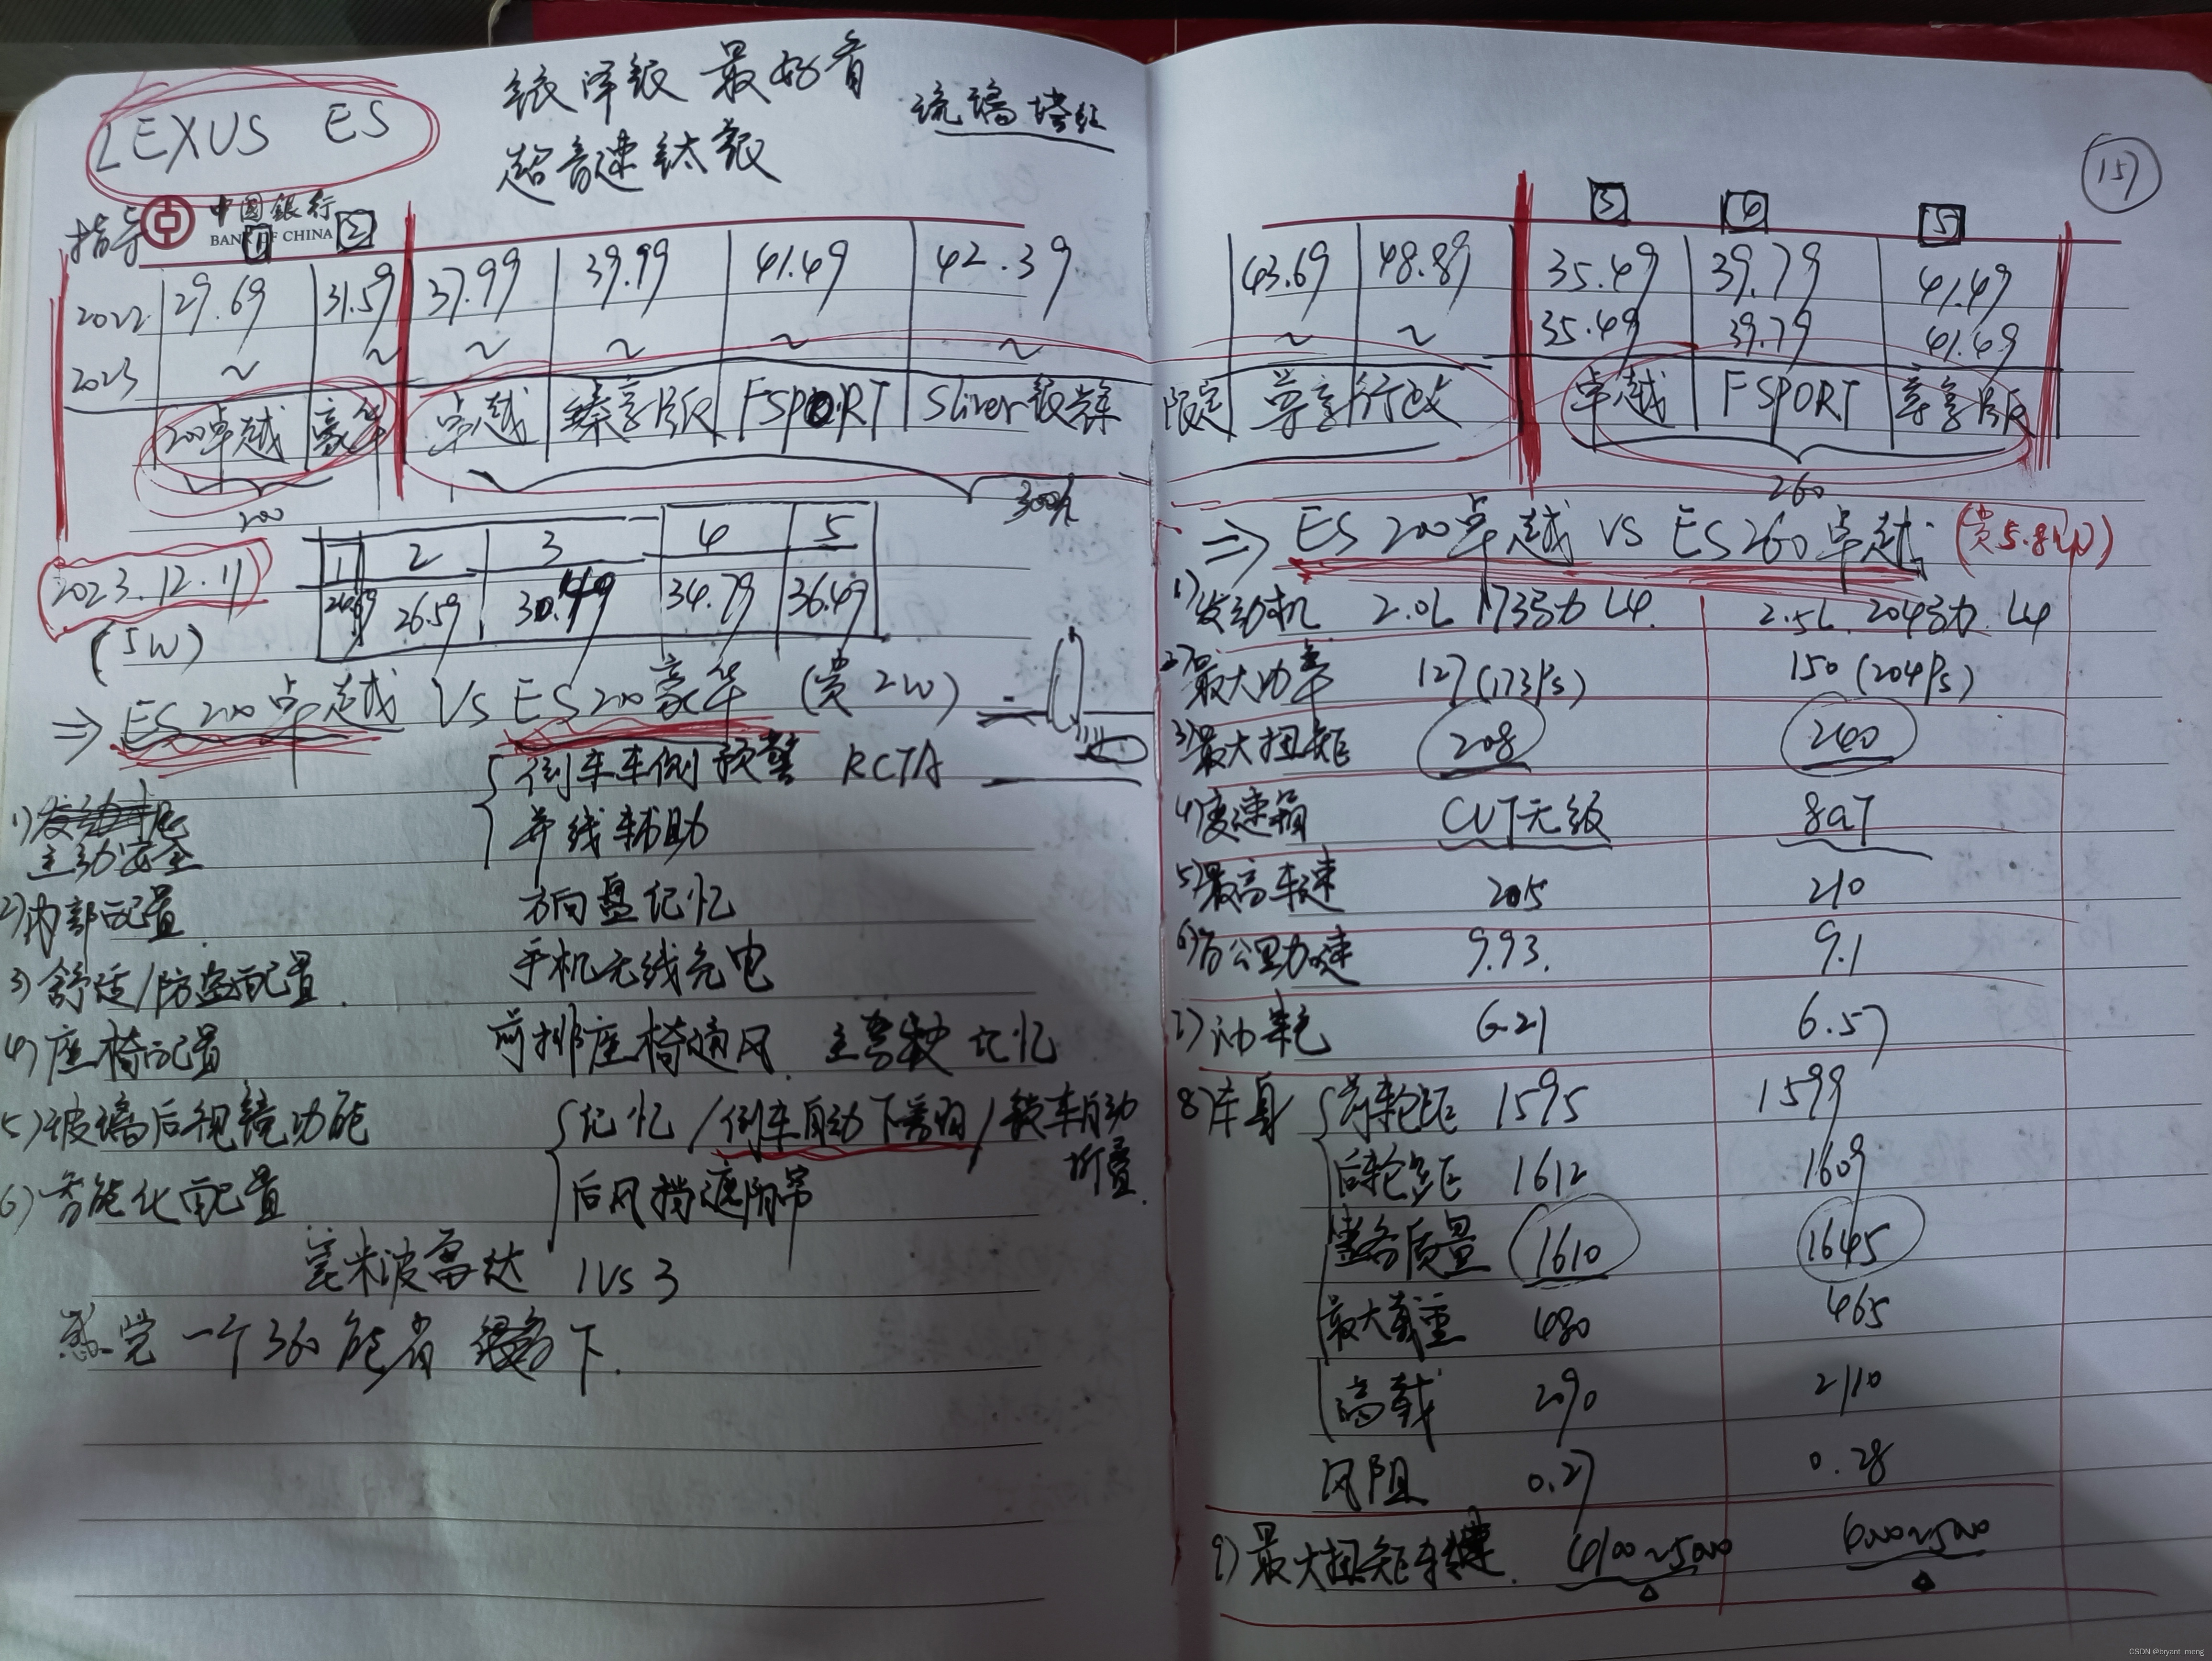 LEXUS ES
铱泽银 最好看
超音速钛银
琉璃塔红
157
中國銀行
BANK OF CHINA
指导
1 2 3 4 5
2022 29.69 31.59 37.99 39.99 41.49 42.39 43.69 48.89 35.49 39.79 41.49
2023 ~ ~ ~ ~ ~ ~ ~ ~ 35.49 39.79 41.49
200卓越 豪华 卓越 臻享版 FSPORT Sliver银 限定 尊享 行政 卓越 FSPORT 尊享版
200 300h 260
2023.12.11
(5W)
1 2 3 4 5
24.69 26.59 30.49 34.79 36.49
⇒ ES 200卓越 Vs ES 200豪华 (贵2W)
1) 主动安全 倒车车侧预警 RCTA
并线辅助
2) 内部配置 方向盘记忆
3) 舒适/防盗配置 手机无线充电
4) 座椅配置 前排座椅通风 主驾驶记忆
5) 玻璃后视镜功能 记忆/倒车自动下翻/锁车自动折叠
后风挡遮阳帘
6) 智能化配置
毫米波雷达 1 Vs 3
感觉一个360能省 下.
⇒ ES 200卓越 VS ES 260卓越 (贵5.8W)
1) 发动机 2.0L 173马力 L4 2.5L 204马力 L4
2) 最大功率 127(173Ps) 150(204Ps)
3) 最大扭矩 208 240
4) 变速箱 CVT无级 8AT
5) 最高车速 205 210
6) 百公里加速 9.93 9.1
7) 油耗 6.21 6.57
8) 车身 前轮距 1595 1599
后轮距 1612 1609
整备质量 1610 1645
最大载重 480 465
满载 2090 2110
风阻 0.27 0.28
9) 最大扭矩转速 4~5000
CSDN @bryant_meng